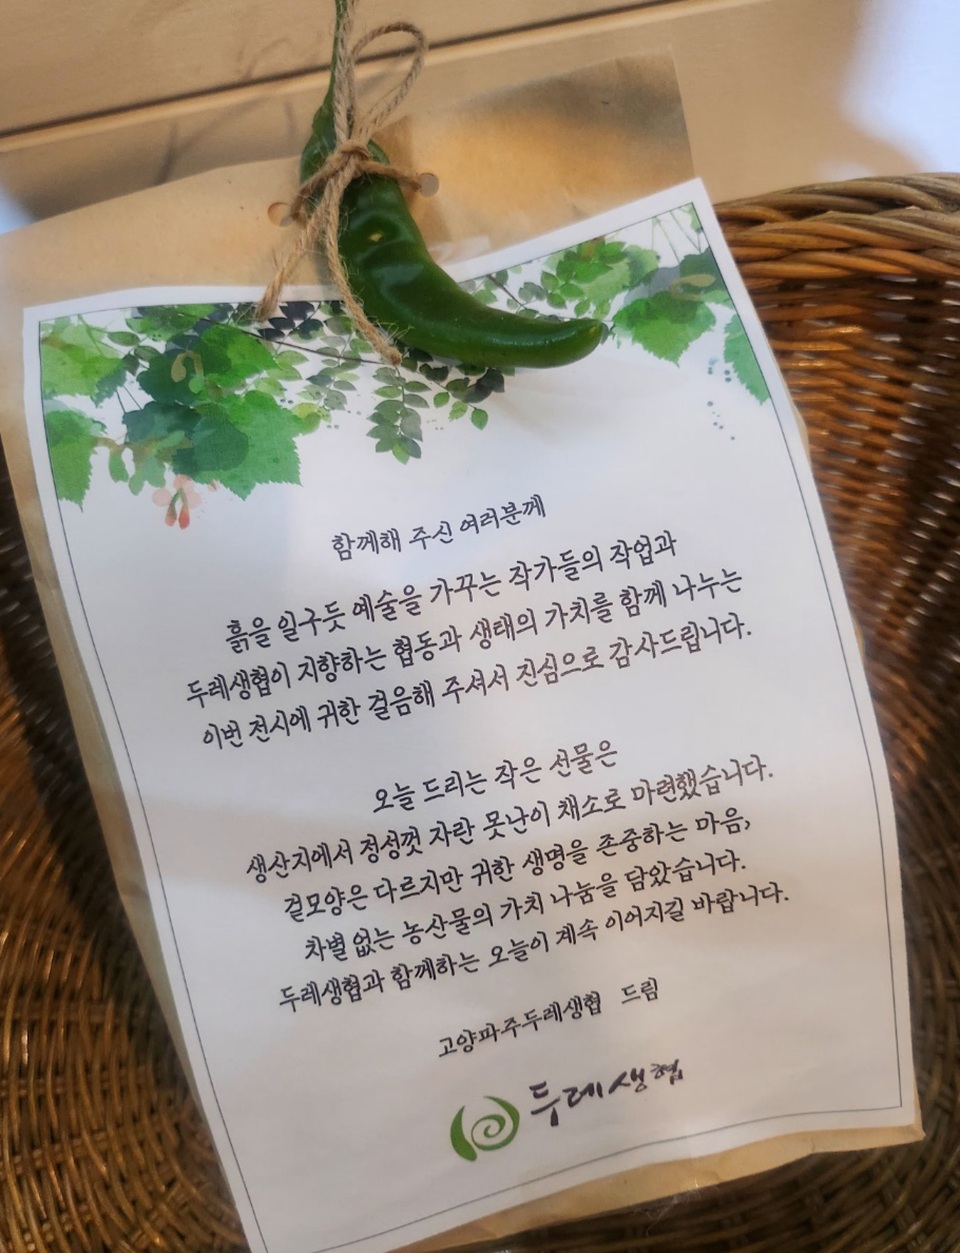 함께해 주신 여러분께
흙을 일구듯 예술을 가꾸는 작가들의 작업과
두레생협이 지향하는 협동과 생태의 가치를 함께 나누는
이번 전시에 귀한 걸음해 주셔서 진심으로 감사드립니다.
오늘 드리는 작은 선물은
생산지에서 정성껏 자란 못난이 채소로 마련했습니다.
겉모양은 다르지만 귀한 생명을 존중하는 마음,
차별 없는 농산물의 가치 나눔을 담았습니다.
두레생협과 함께하는 오늘이 계속 이어지길 바랍니다.
고양파주두레생협 드림
두레생협